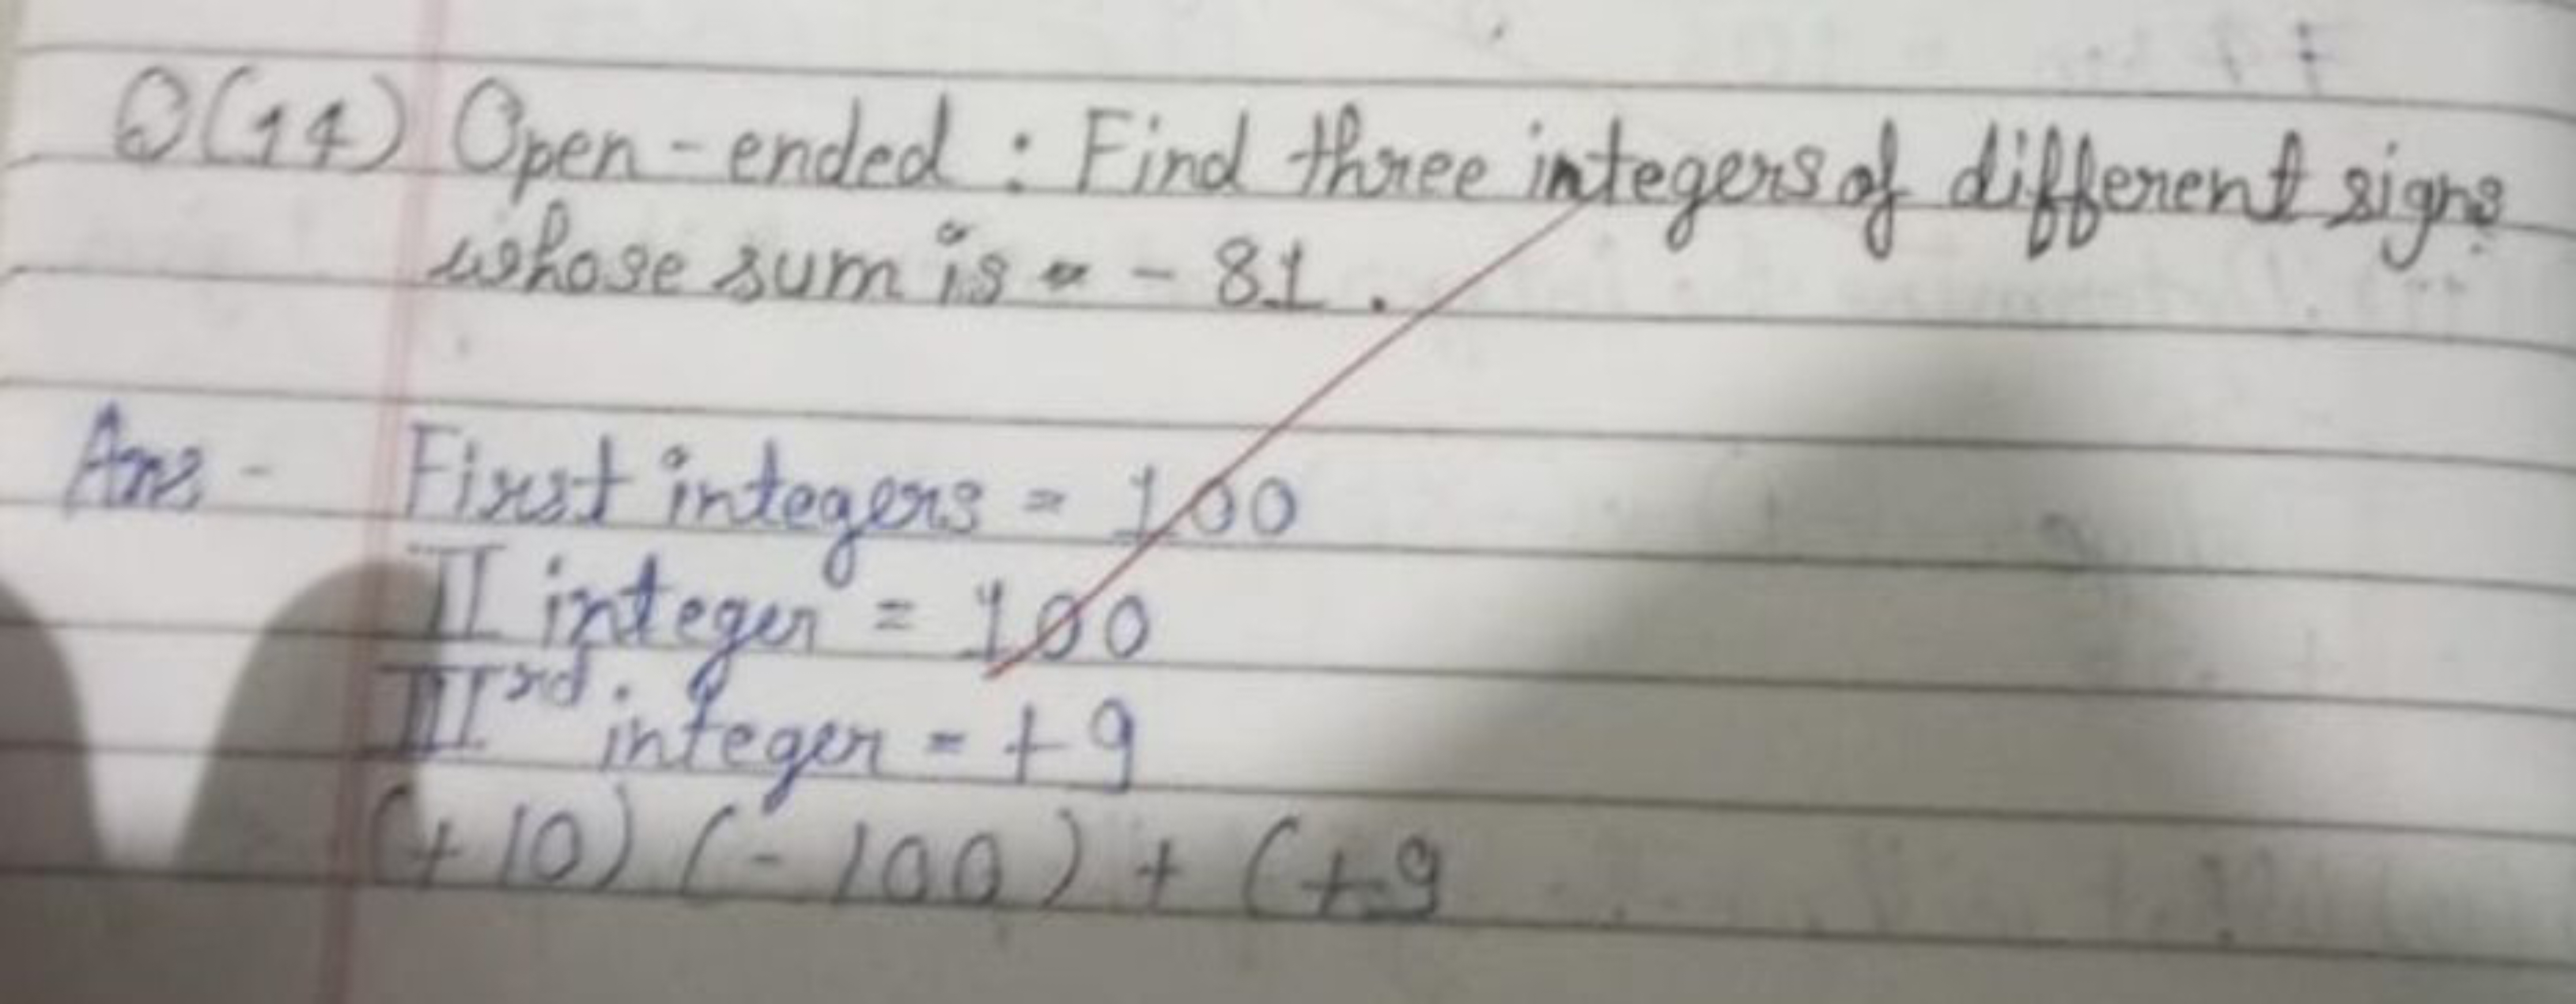 Q(14) Open-ended : Find three integers of different signs
whose sum is - - 81 .
Ans - First integers = 100
II integer = 100
IIIrd. integer = +9
(+10) (-100) + (+9